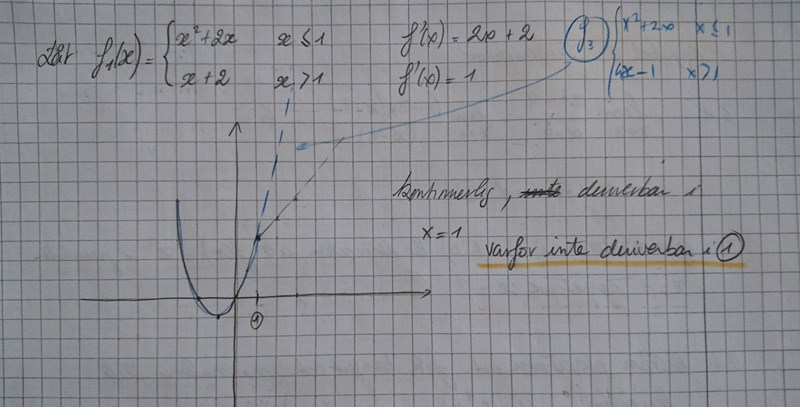 Låt f₁(x) = { x²+2x x ≤ 1 f'(x) = 2x + 2
x+2 x > 1 f'(x) = 1
f₃ { x²+2x x ≤ 1
4x-1 x > 1
kontinuerlig, inte deriverbar i
x = 1
varför inte deriverbar i 1
1